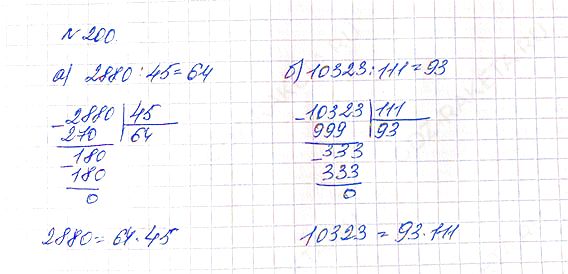 № 200.
а) 2880 : 45 = 64
б) 10323 : 111 = 93
- 2880 | 45
270 | 64
- 180
180
0
- 10323 | 111
999 | 93
- 333
333
0
2880 = 64 · 45
10323 = 93 · 111